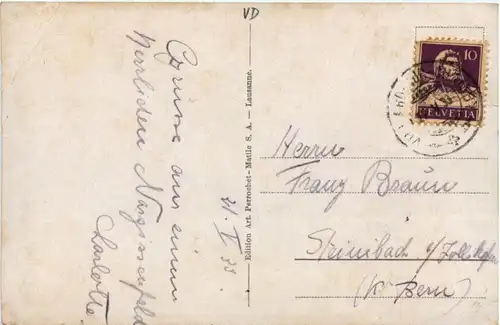 VD
Grüsse aus einem
herrlichen Narzissenfeld
Charlotte.
31. V. 33.
Edition Art. Perrochet-Matile S. A. — Lausanne.
10
HELVETIA
Herrn
Franz Braun
Steinibach b/Zollikofen
(Kt. Bern)